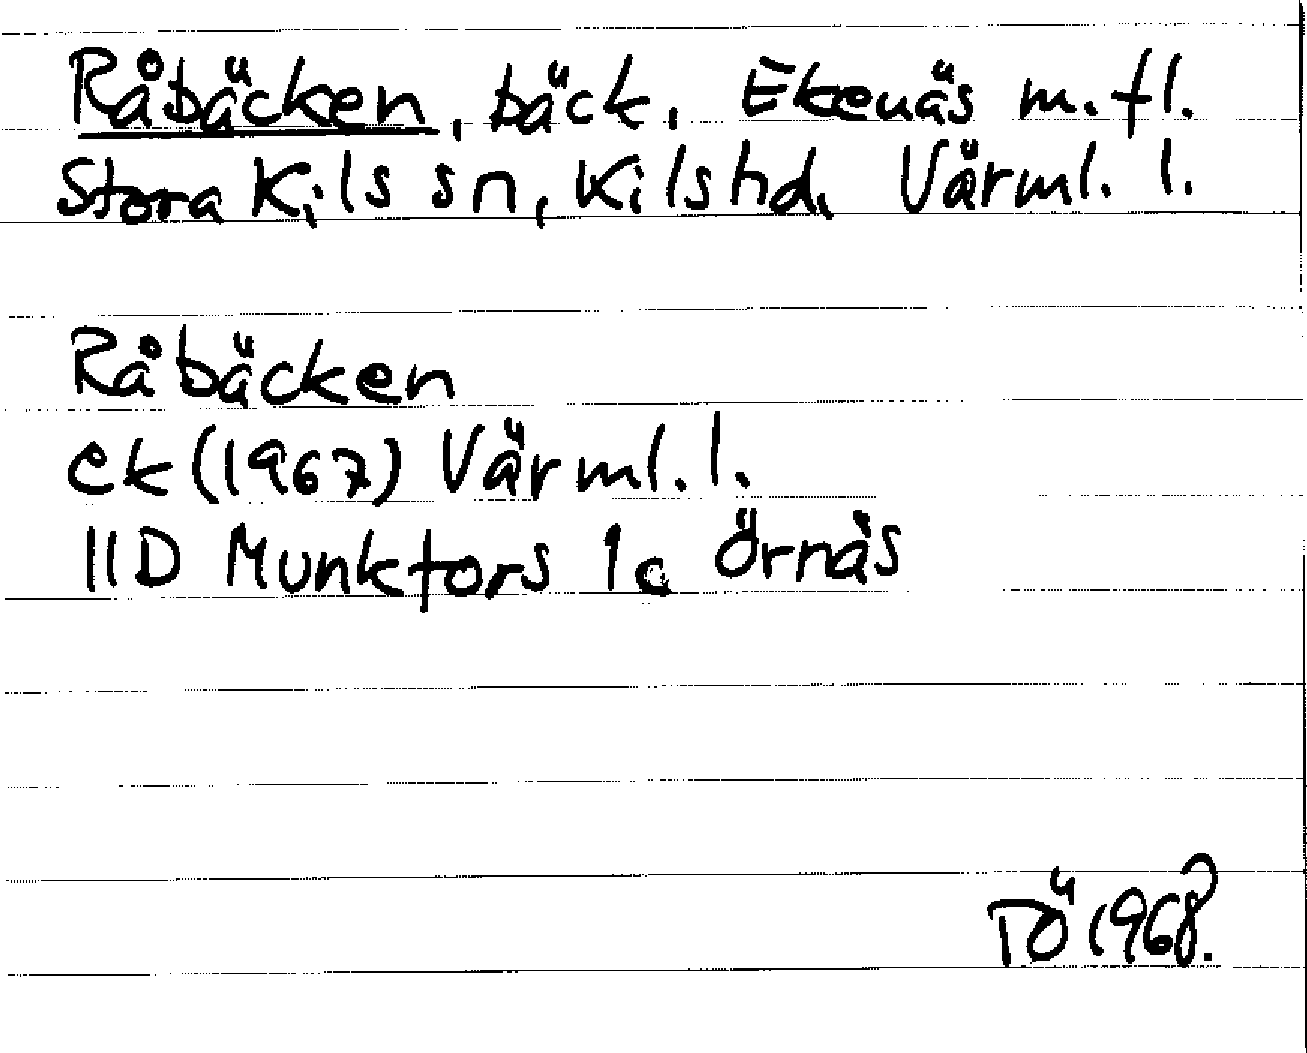 Råbäcken, bäck, Ekenäs m.fl.
Stora Kils sn, Kils hd, Värml. l.
Råbäcken
ek (1967) Värml. l.
11D Munkfors 1c Örnäs
TÖ 1968.